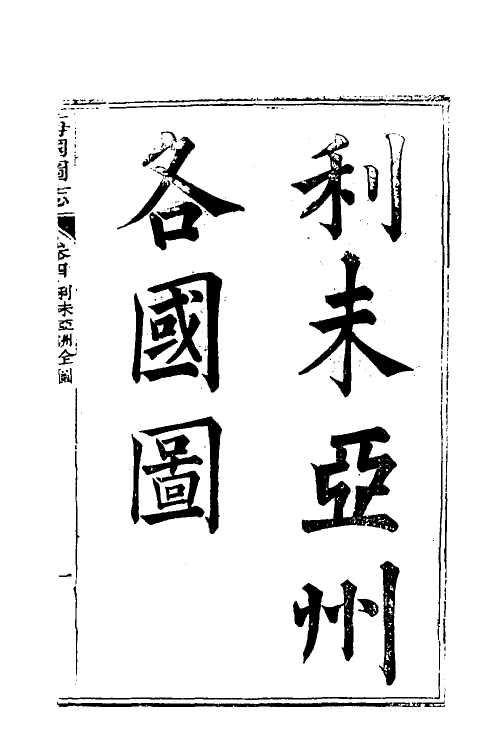 利未亞州
各國圖
海國圖志
卷四 利未亞洲全圖
一